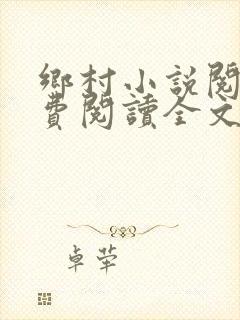 鄉村小說閱
費閱讀全文
卓犖